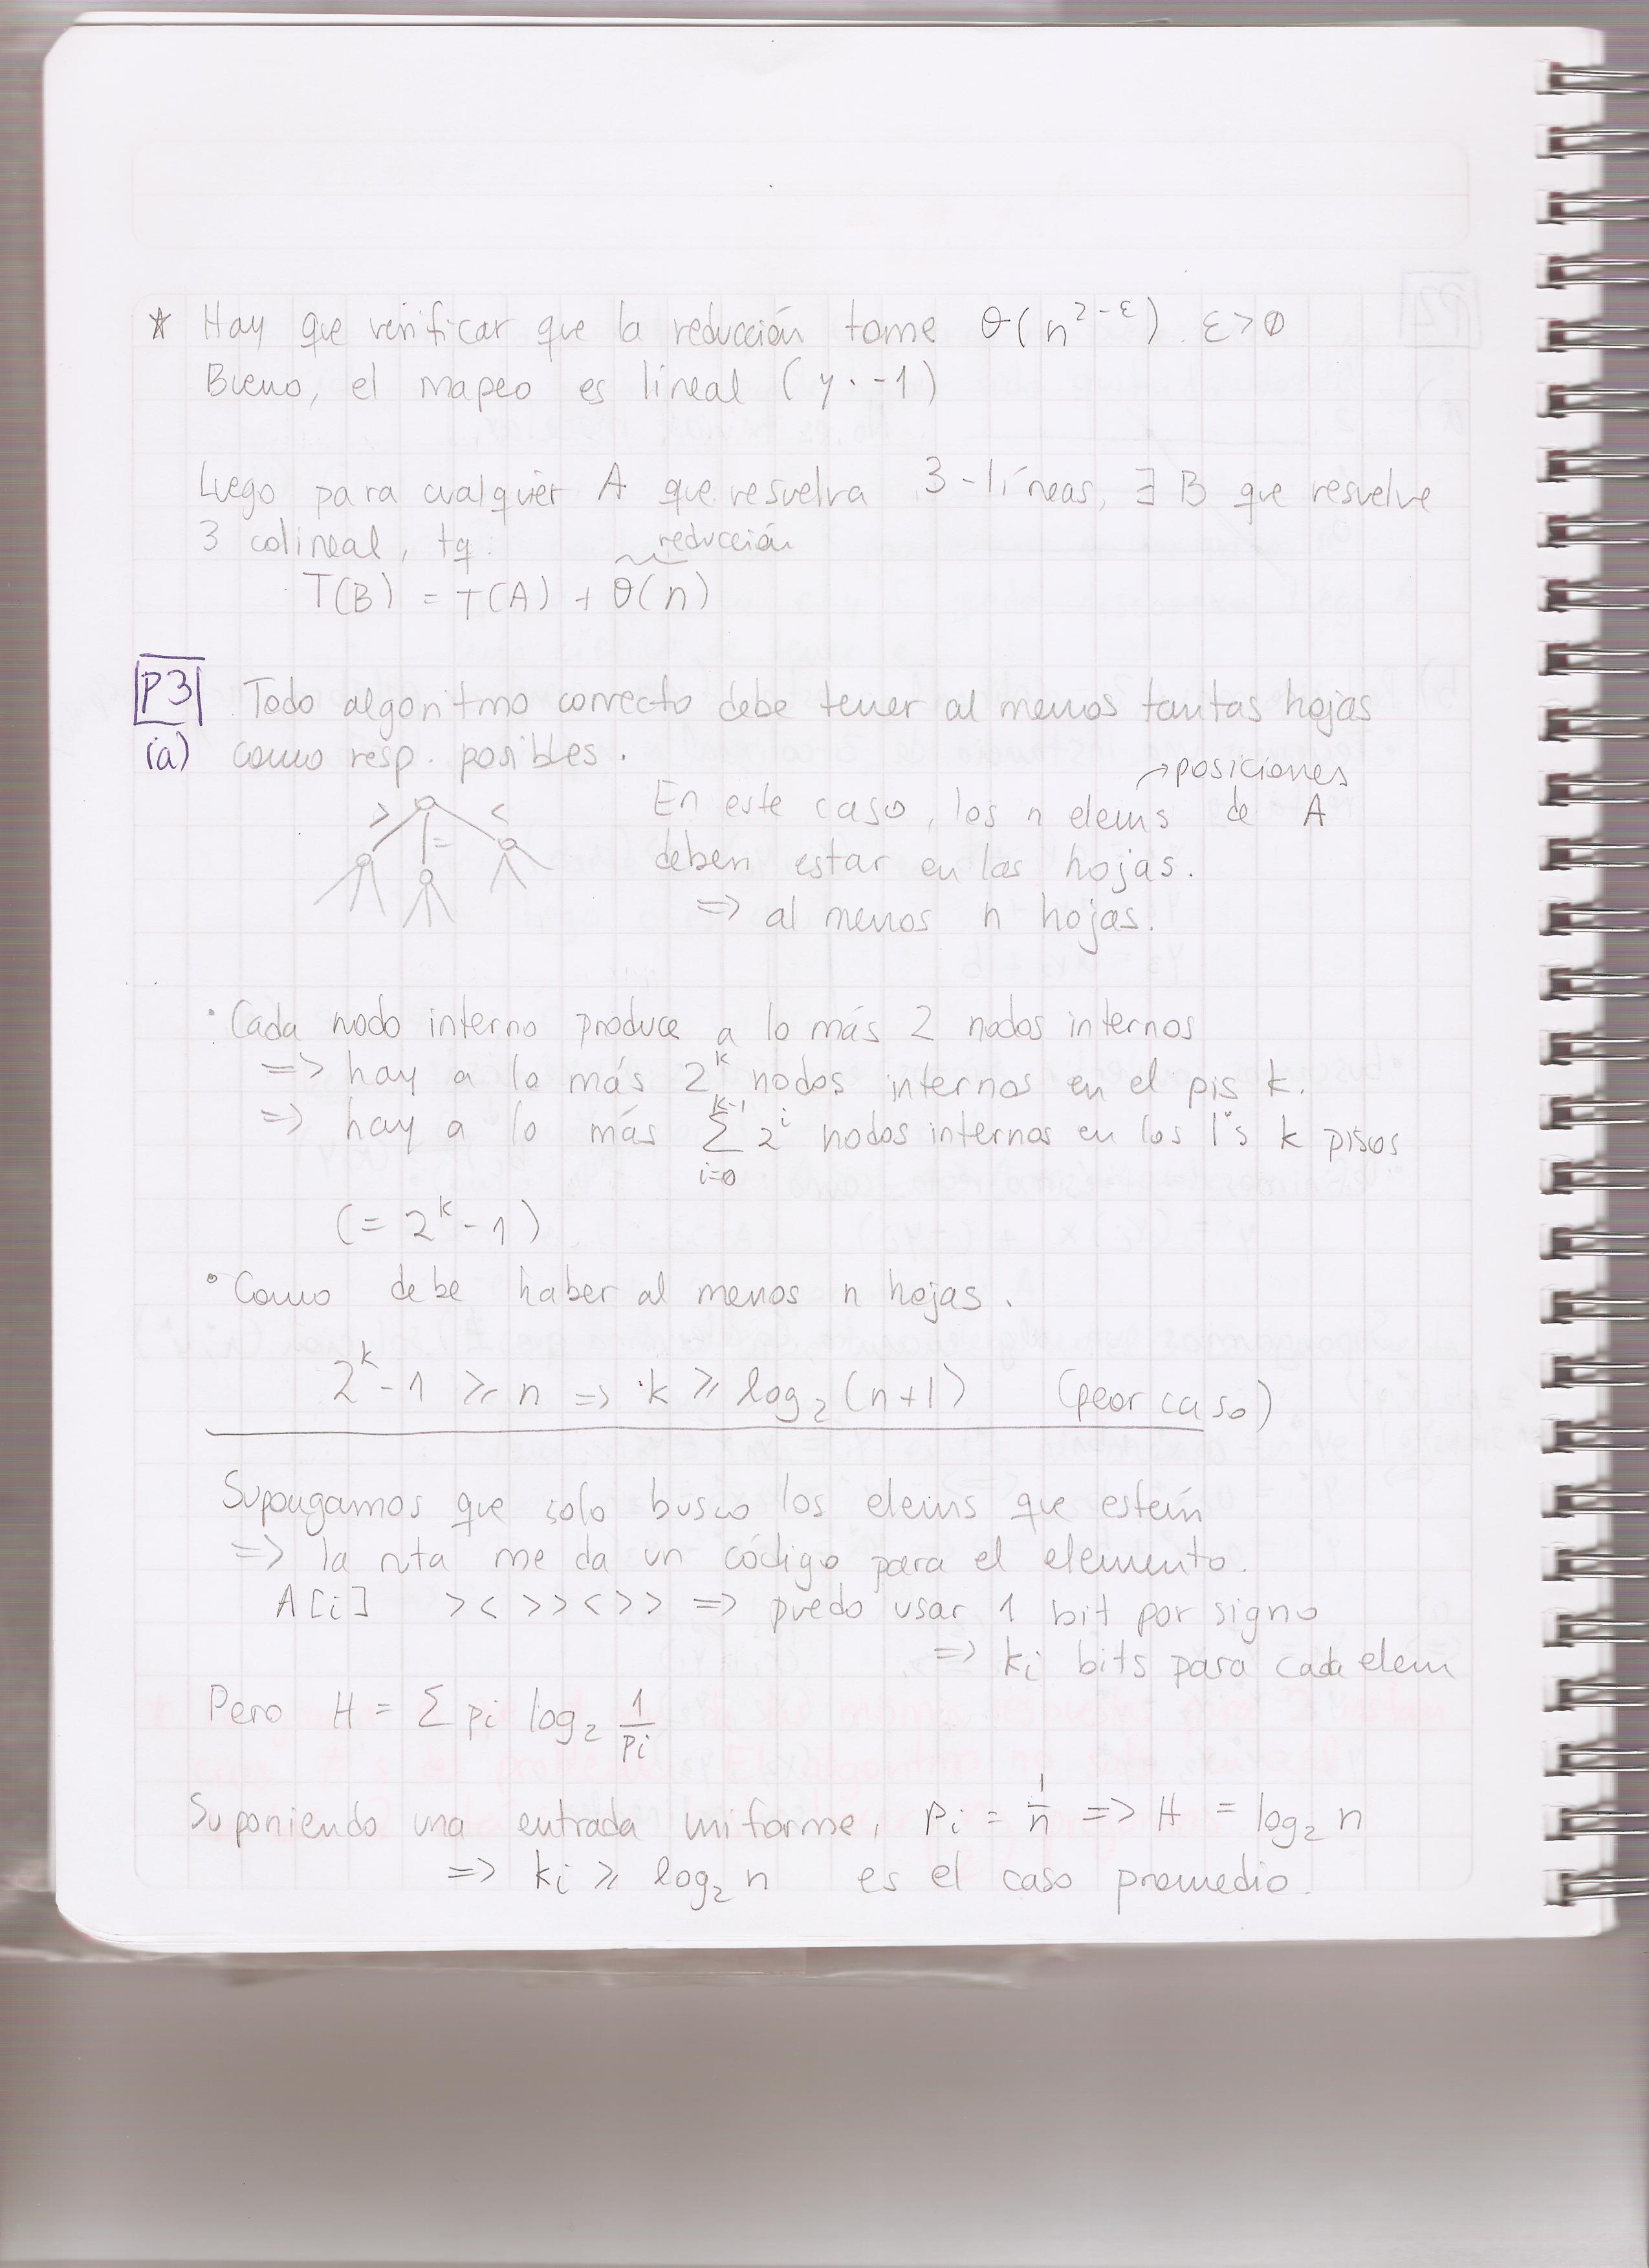 * Hay que verificar que la reducción tome θ(n^{2-ε}). ε>0
Bueno, el mapeo es lineal (y·-1)
Luego para cualquier A que resuelva 3-líneas, ∃ B que resuelve
3 colineal, tq:
reducción
T(B) = T(A) + θ(n)
P3 Todo algoritmo correcto debe tener al menos tantas hojas
(a) como resp. posibles.
→posiciones
> = <
En este caso, los n elems de A
deben estar en las hojas.
=> al menos n hojas.
• Cada nodo interno produce a lo más 2 nodos internos
=> hay a lo más 2^k nodos internos en el pis k.
=> hay a lo más Σ_{i=0}^{k-1} 2^i nodos internos en los 1°s k pisos
(= 2^k - 1)
• Como debe haber al menos n hojas.
2^k - 1 ≥ n => k ≥ log₂(n+1) (peor caso)
Supongamos que solo busco los elems que están
=> la ruta me da un código para el elemento.
A[i] > < > > < > > => puedo usar 1 bit por signo
=> ki bits para cada elem
Pero H = Σ pi log₂ 1/pi
Suponiendo una entrada uniforme, Pi = 1/n => H = log₂ n
=> ki ≥ log₂ n es el caso promedio.